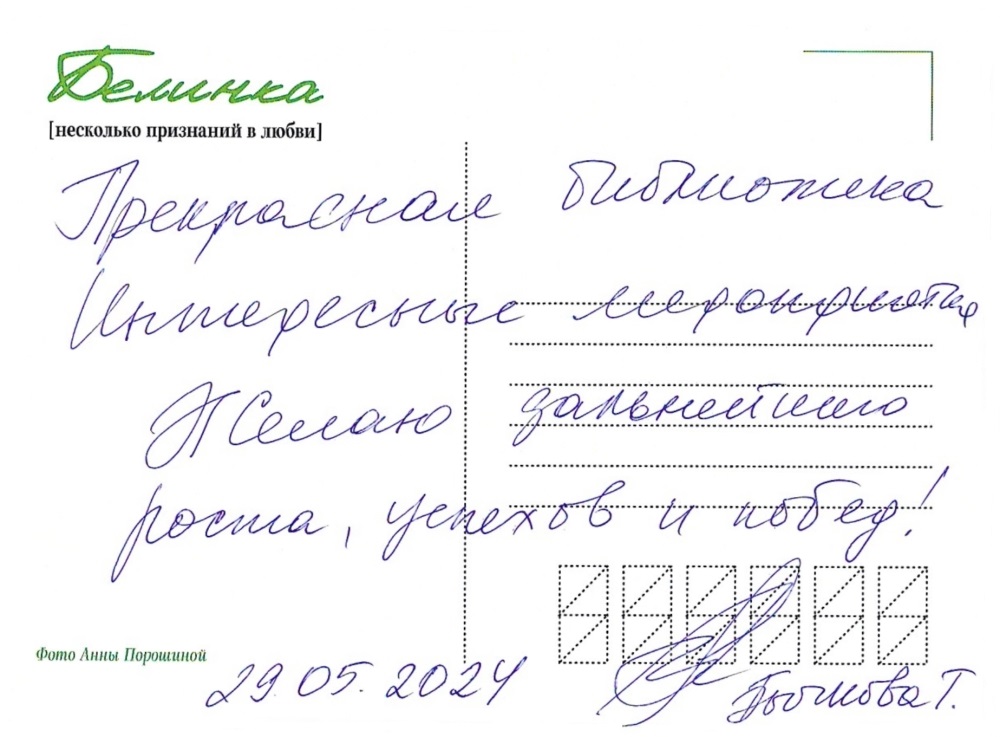 Белинка
[несколько признаний в любви]
Прекрасная библиотека
Интересные мероприятия
Желаю дальнейшего
роста, успехов и побед!
Фото Анны Порошиной
29.05.2024
Бычкова Т.